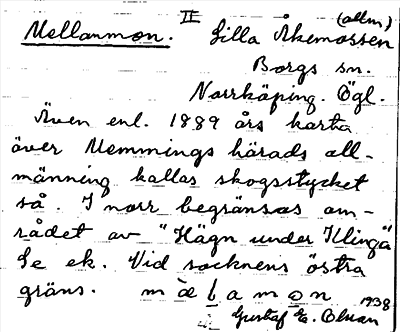 II (allm)
Mellanmon. Lilla Åkemossen
Borgs sn.
Norrköping. Ögl.
Även enl. 1889 års karta
över Memmings härads all-
männing kallas skogsstycket
så. I norr begränsas om-
rådet av "Hägn under Klinga"
Se ek. Vid socknens östra
gräns. mælamon 1938
Gustaf E. Olsson